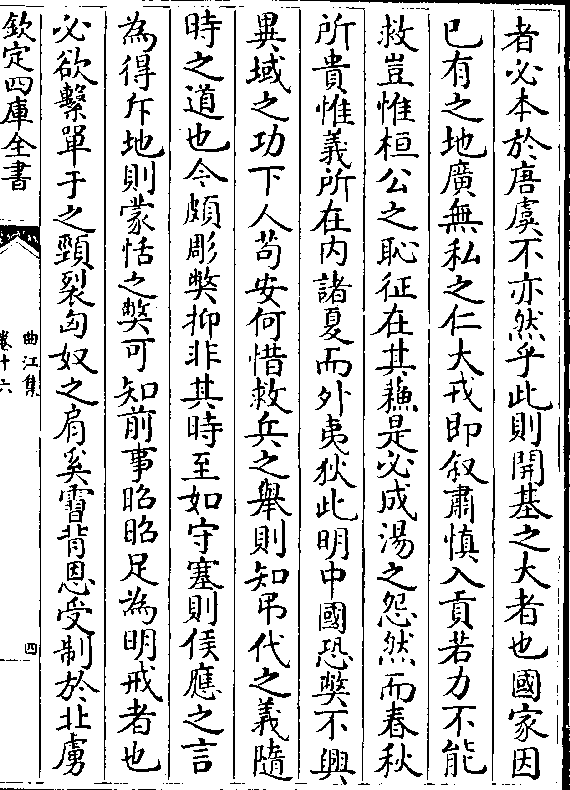 者必本於唐虞不亦然乎此則開基之大者也國家因
已有之地廣無私之仁大戎即叙肅慎入貢若力不能
救豈惟桓公之恥征在其蘓是必成湯之怨然而春秋
所貴惟義所在内諸夏而外夷狄此明中國恐獘不興
異域之功下人苟安何惜救兵之舉則知弔代之義隨
時之道也今頗彫獘抑非其時至如守塞則侯應之言
為得斥地則蒙恬之獘可知前事昭昭足為明戒者也
必欲繫單于之頸裂匈奴之肩奚霫背恩受制於北虜
欽定四庫全書
曲江集
卷十六
四